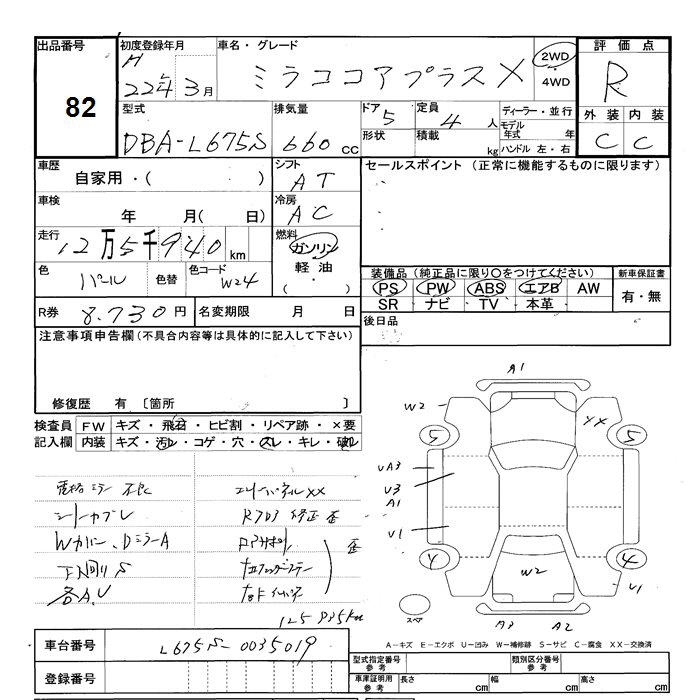 出品番号 初度登録年月 車名・グレード 評価点
82
H 22年3月 ミラココアプラスX 2WD 4WD R
型式 排気量 ドア 5 定員 4人 ディーラー・並行 外装 内装
DBA-L675S 660cc 形状 積載 kg モデル年式 年 ハンドル 左・右 C C
車歴 自家用・( ) シフト AT セールスポイント (正常に機能するものに限ります)
車検 年 月( 日) 冷房 AC
走行 12万5千940km 燃料 ガソリン 軽油 ( ・ )
色 パール 色替 色コード W24
装備品 (純正品に限り〇をつけてください) 新車保証書
PS PW ABS エアB AW 有・無
SR ナビ TV 本革
R券 8,730円 名変期限 月 日 後日品
注意事項申告欄(不具合内容等は具体的に記入して下さい)
修復歴 有 〔箇所 〕
検査員 FW キズ・飛石・ヒビ割・リペア跡・×要
記入欄 内装 キズ・汚レ・コゲ・穴・スレ・キレ・破レ
A1
W2 XX
5 5
UA3
U3
A1
U1
4 4
W2 U1
スペア
A3 A2
シートカブレ
Wカバー、DミラーA
各A,U
125935km
A-キズ E-エクボ U-凹み W-補修跡 S-サビ C-腐食 XX-交換済
車台番号 L675S-0035019
型式指定番号 参考 類別区分番号 参考
登録番号 車庫証明用 参考 長さ cm 幅 cm 高さ cm